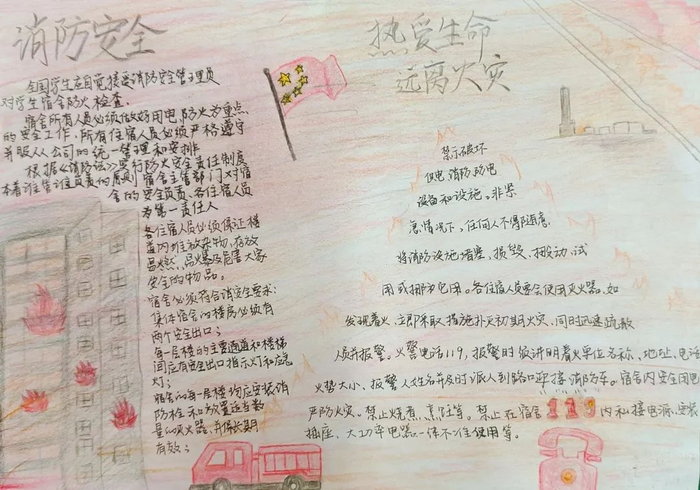 消防安全
全国学生应自觉接受消防安全管理员
对学生宿舍防火检查.
宿舍所有人员必须做好用电,防火为重点,
的安全工作,所有住宿人员必须严格遵守
并服从公司的统一管理和安排
根据《消防法》实行防火安全责任制度
本着谁管谁负责的原则宿舍主管部门对宿
舍的安全负责、各住宿人员
为第一责任人
各住宿人员必须保证楼
道内堆放杂物,存放
易燃、易爆及危害大家
安全的物品。
宿舍必须符合消安全要求:
集体宿舍的楼房必须有
两个安全出口;
每一层楼的主要通道和楼梯
间应有安全出口指示灯和应急
灯;
宿舍的每一层楼均应安装消
防栓和放置适当数
量的灭火器,并保长期
有效;
热爱生命
远离火灾
禁示破坏
供电消防,防电
设备和设施。非紧
急情况下,任何人不得随意
将消防设施堵塞、损毁、搬动、试
用或挪为它用。各住宿人员要会使用灭火器、如
发现着火、立即采取措施扑灭初期火灾,同时迅速疏散
人员并报警。火警电话119,报警时做讲明着火单位名称、地址,电话
火势大小、报警人姓名并及时派人到路口迎接消防车。宿舍内安全用电
严防火灾、禁止烧煮、烹饪等。禁止在宿舍内私接电源、安装
插座、大功率电器一律不准使用等。
119